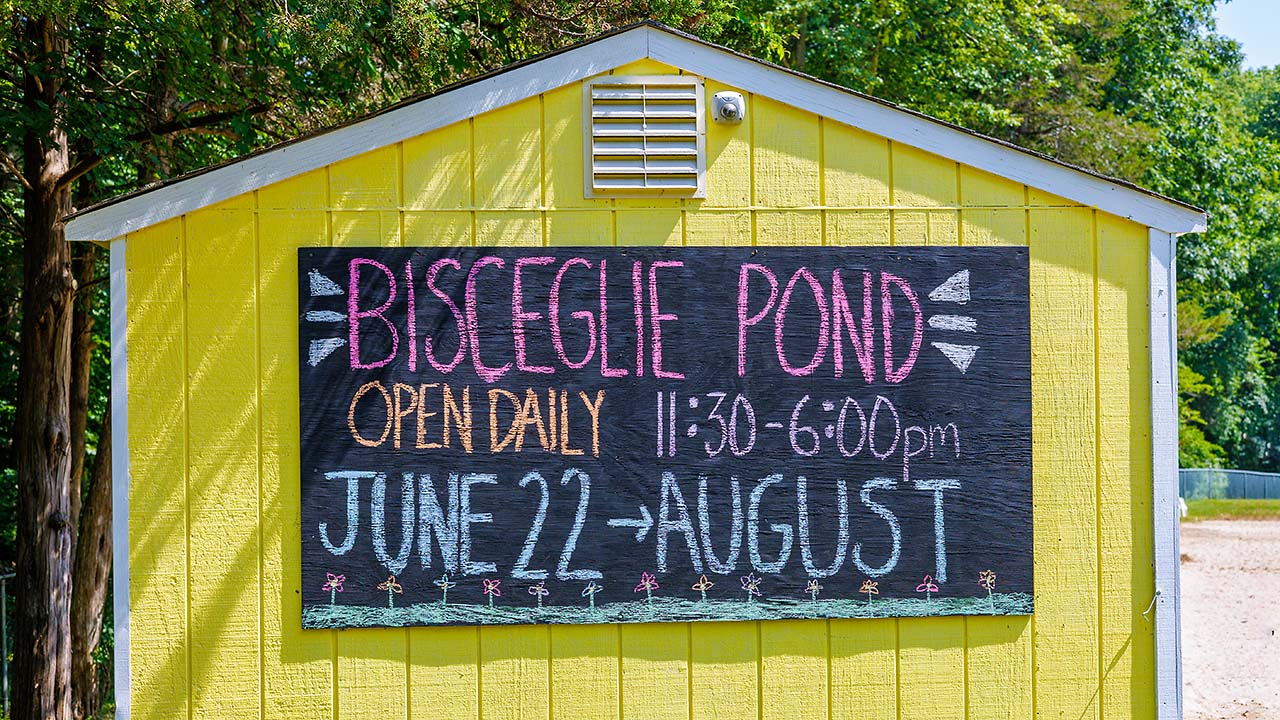 BISCEGLIE POND
OPEN DAILY 11:30-6:00pm
JUNE 22→AUGUST